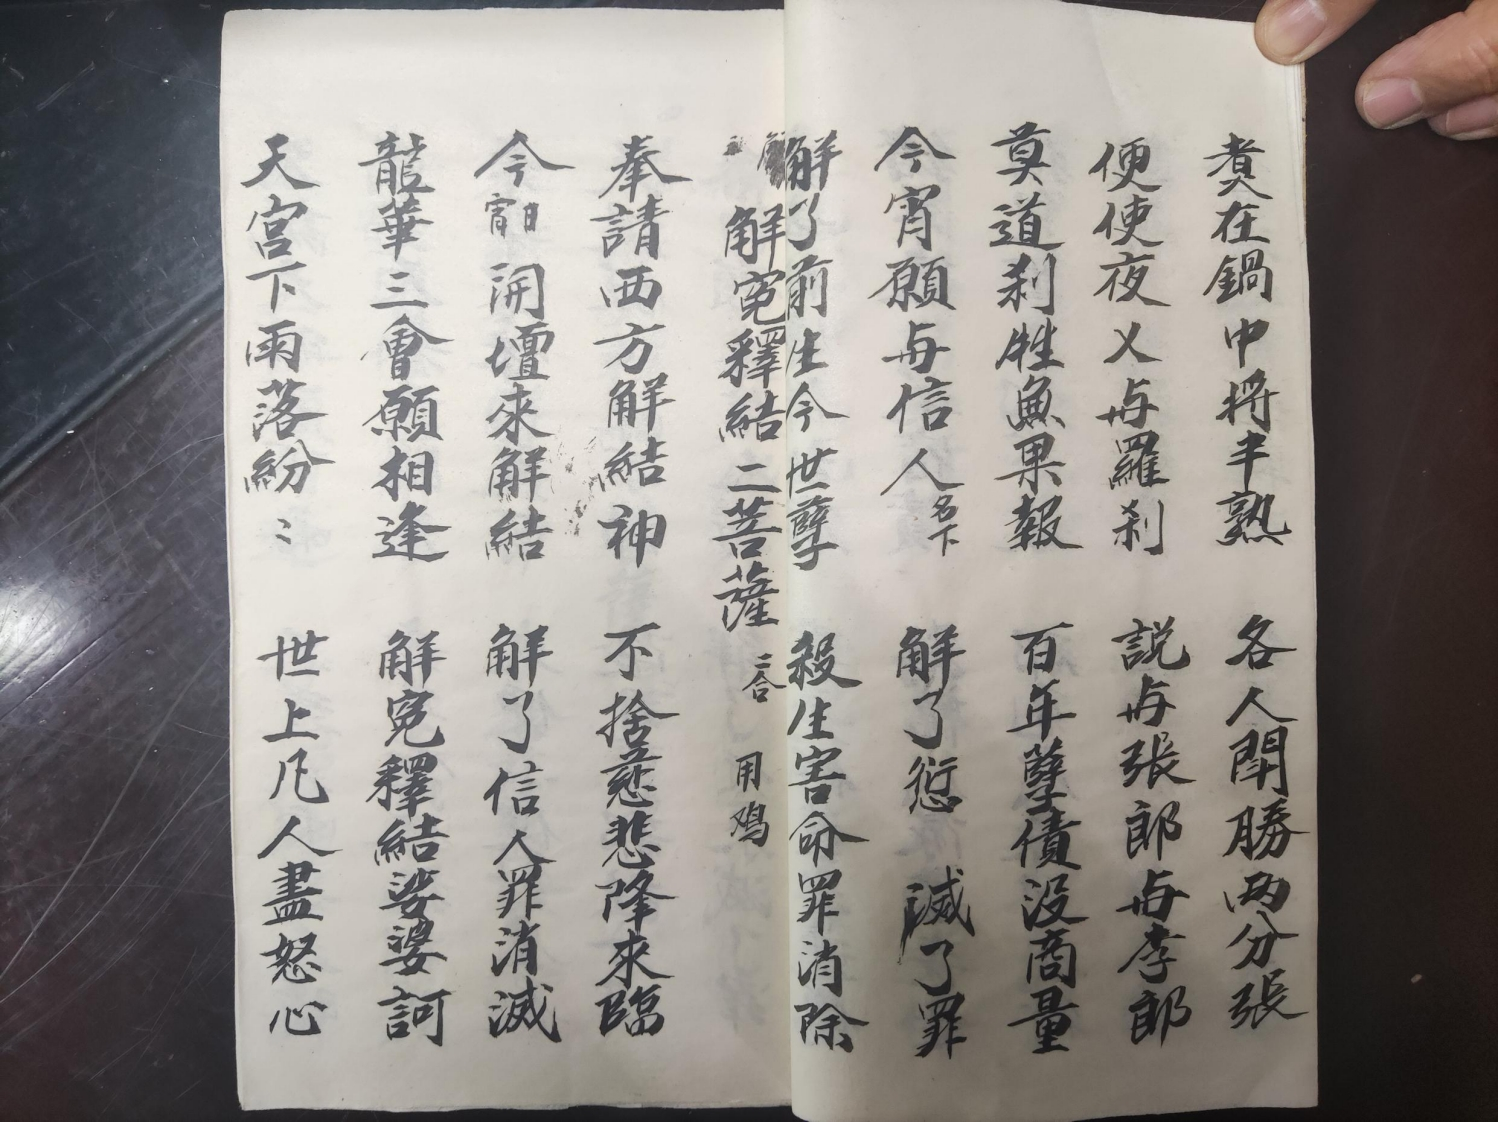 煑在鍋中将半熟 各人閗勝两分張
便使夜乂与羅刹 説与張郎与李郎
莫道刹牲魚果報 百年孽債没商量
今宵願与信人名下 解了愆 滅了罪
解了前生今世孽 殺生害命罪消除
解寃釋結二菩薩 二合 用鸡
奉請西方解結神 不捨慈悲降來臨
今宵日開壇來解結 解了信人罪消滅
龍華三會願相逢 解寃釋結娑婆訶
天宫下雨落紛〻 世上凡人盡怒心